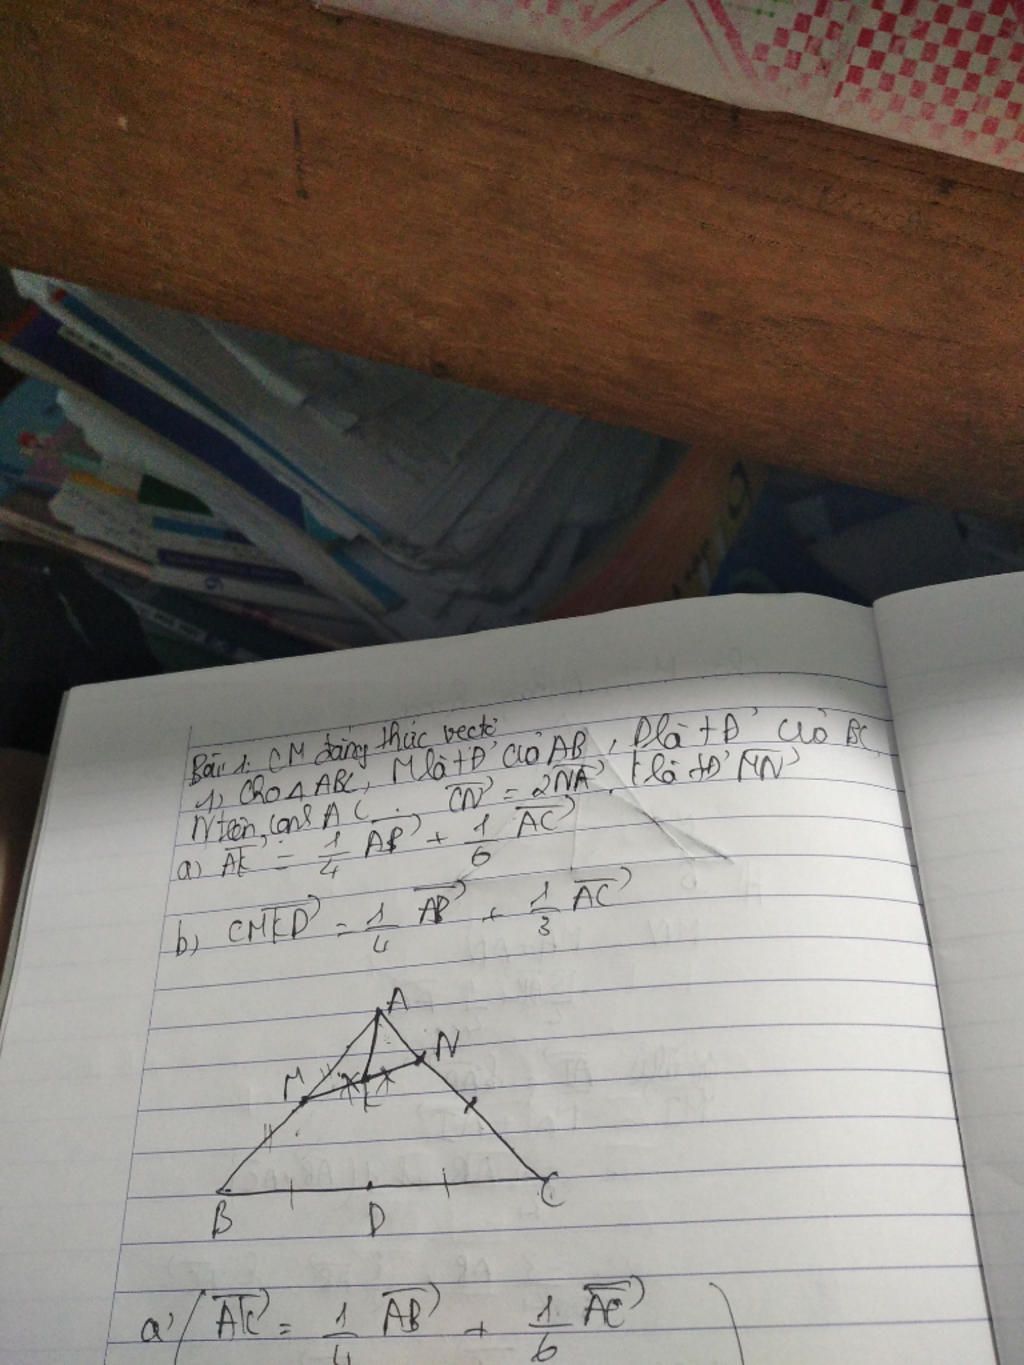 Bài 1: CM đẳng thức vectơ
1, Cho △ ABC, M là tĐ' của AB, D là tĐ' của BC
N trên cạnh AC : CN = 2NA, K là tĐ' MN
a) AK = 1/4 AB + 1/6 AC
b, CM KD = 1/4 AB + 1/3 AC
A
N
M
K
B D C
a' ( AK = 1/4 AB + 1/6 AC )